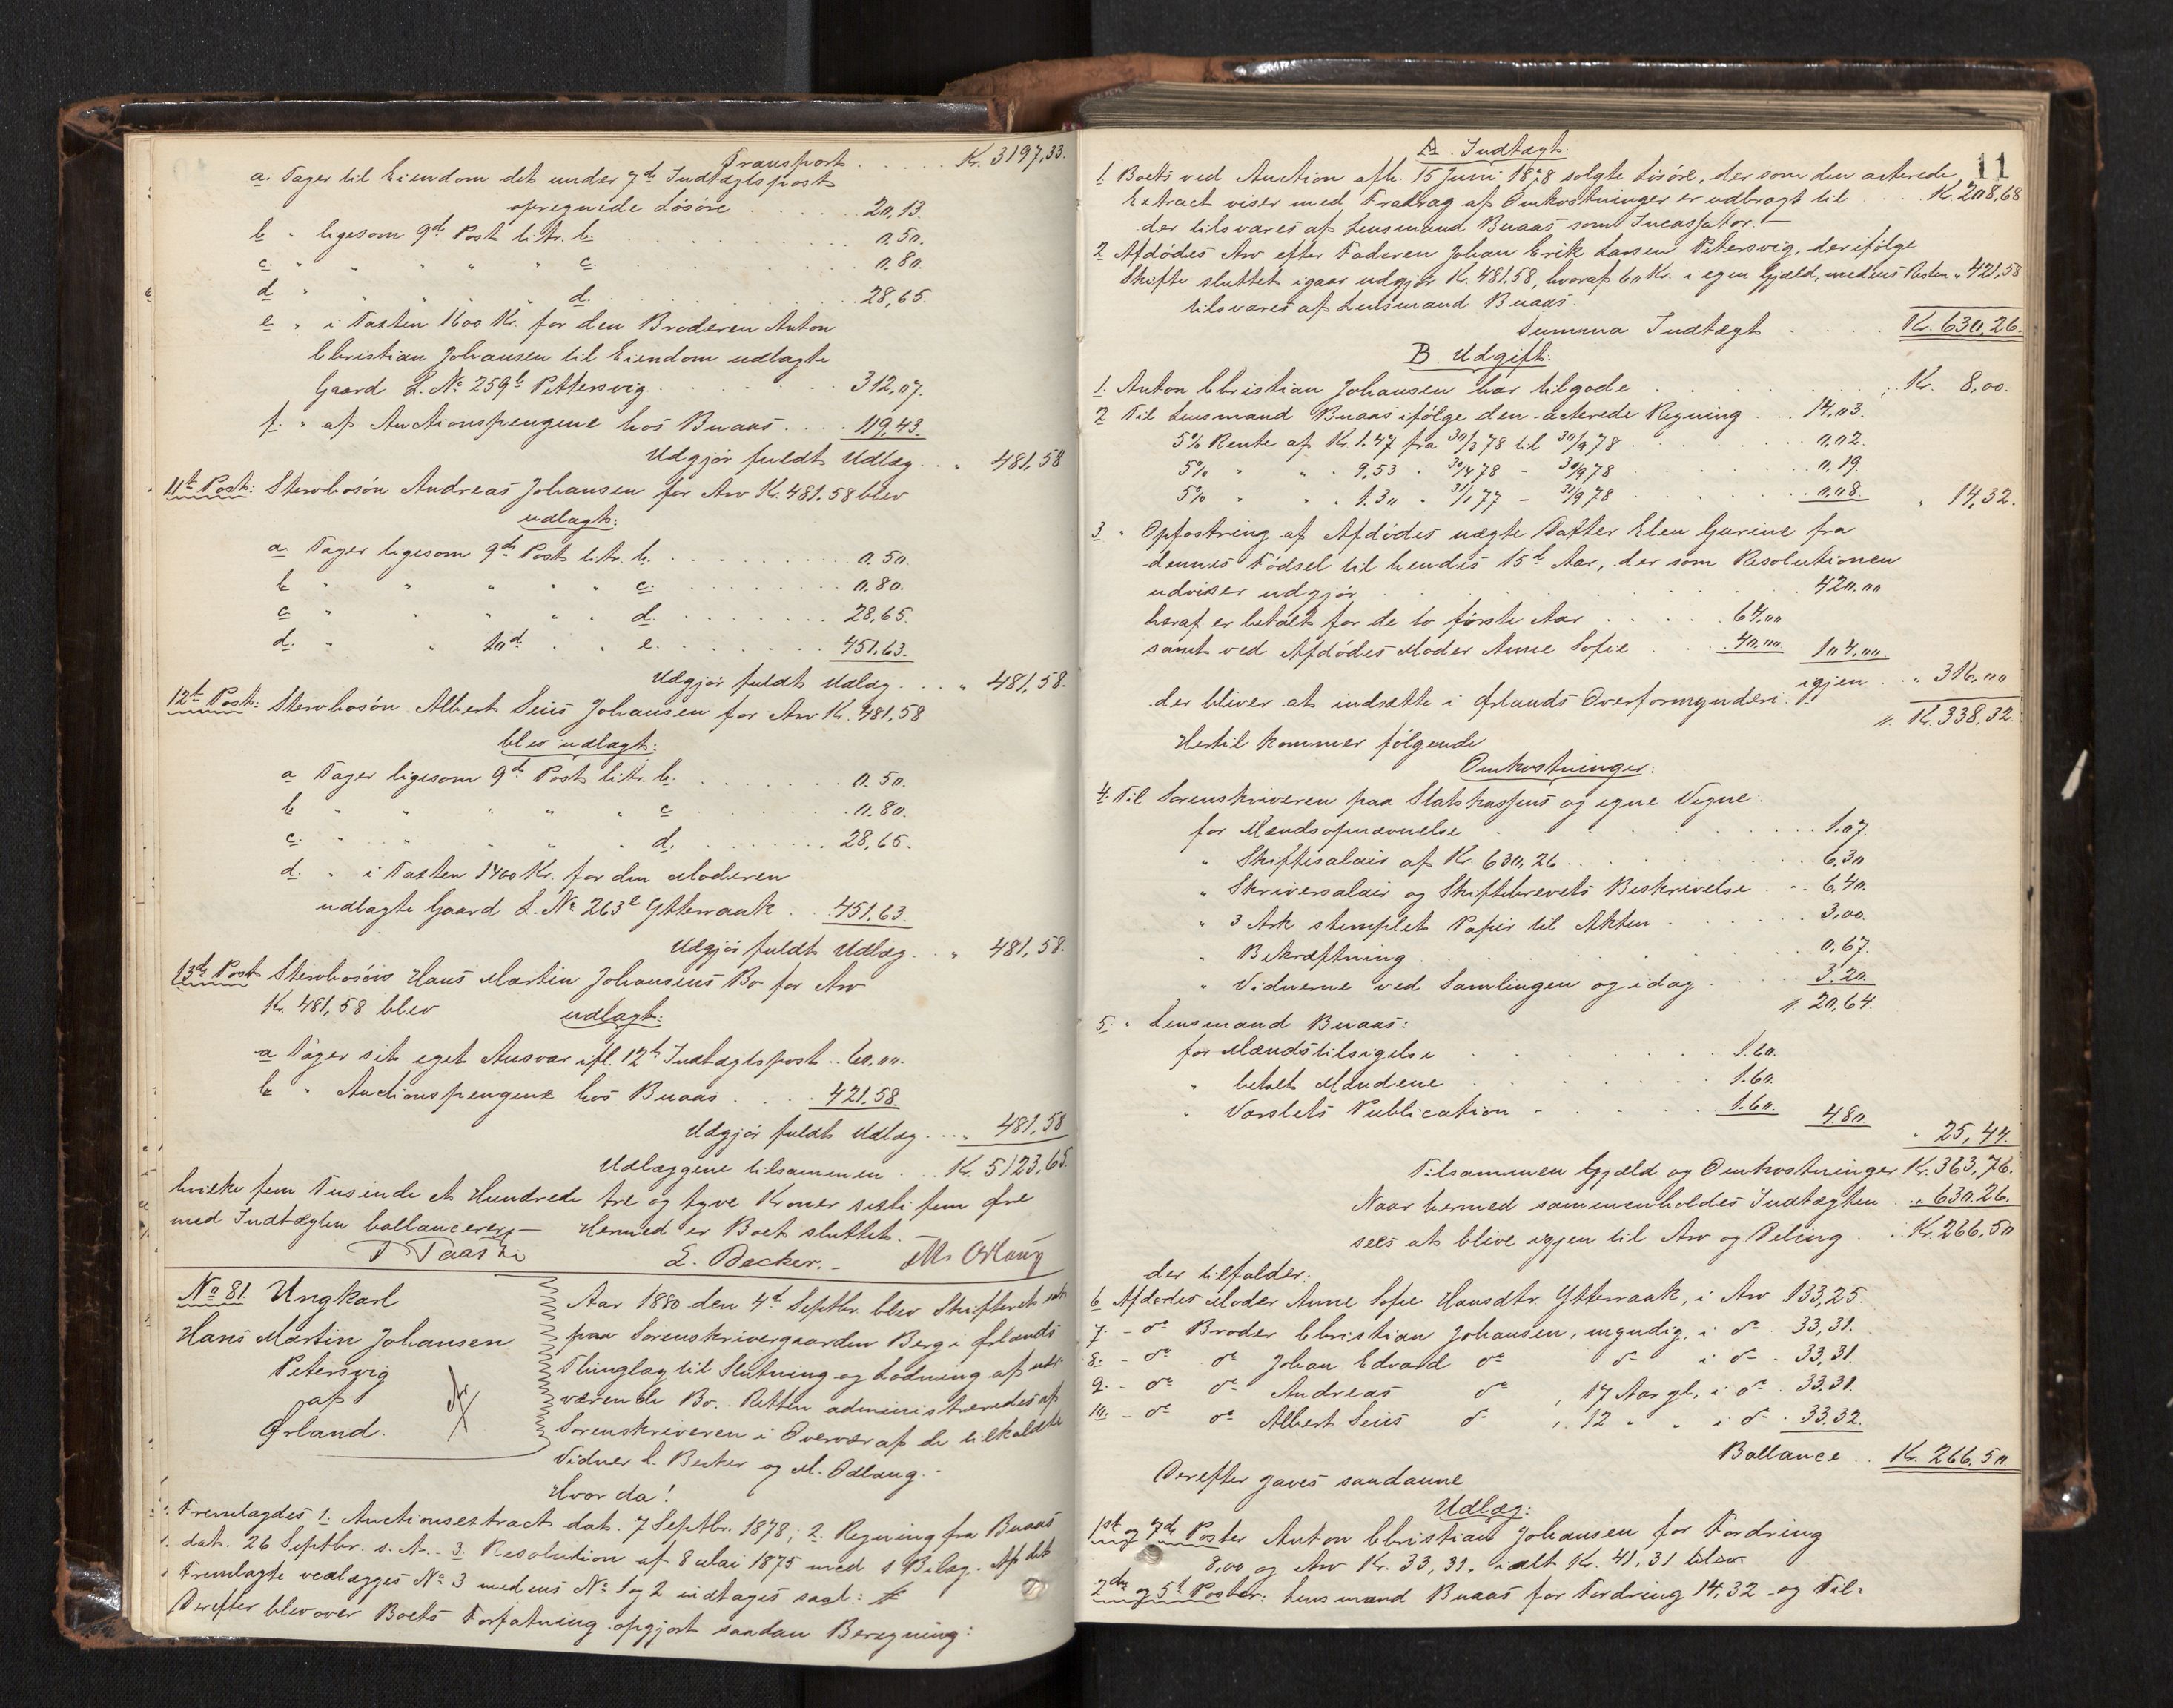 Transport . . . . . Kr. 3197,33.
a. Tager til Eiendom det under 7de Indtægtspost
opregnede Løsøre . . . . . . 20,13.
b " ligesom 9de Post litr. b. . . . . . . 0.50.
c. " " " " " c. . . . . . . 0,80.
d " " " " " d. . . . . . . 28,65.
e " i Taxten 1600 Kr. for den Broderen Anton
Christian Johansen til Eiendom udlagte
Gaard L. No 259b Pettersvig . . . . . . 312,07.
f. " af Auctionspengene hos Buaas . . . . 119,43.
Udgjør fuldt Udlæg . . " 481,58
11te Post: Sterbosøn Andreas Johansen for Arv Kr. 481.58 blev
udlagt:
a Tager ligesom 9de Post litr. b. . . . . . . 0.50
b " " " " " c. . . . . . . 0.80.
c " " " " " d. . . . . . . 28,65.
d. " " 10de " " e. . . . . . . 451.63.
Udgjør fuldt Udlæg . . . " 481,58.
12te Post: Sterbosøn Albert Seiis Johansen for Arv Kr. 481,58
blev udlagt:
a Tager ligesom 9de Post litr. b. . . . . . . 0.50.
b " " " " " c . . . . . . 0.80.
c. " " " " " d. . . . . . . 28,65.
d. " i Taxten 1400 Kr. for den Moderen
udlagte Gaard L. No 263e Ytterraak . . 451,63.
Udgjør fuldt Udlæg . . " 481,58.
13de Post Sterbosøns Hans Martin Johansens Bo for Arv
Kr. 481,58 blev udlagt:
a Tager sit eget Ansvar ifl. 12te Indtægtspost . . 60,00.
b " Auctionspengene hos Buaas . . . . 421.58.
Udgjør fuldt Udlæg . . . " 481,58
Udlæggene tilsammen . . . Kr. 5123,65.
hvilke fem Tusinde et Hundrede tre og tyve Kroner sexti fem Øre
med Indtægten ballancerer. — Hermed er Boet sluttet. —
L. Becker. - M. Odlaug
No 81. Ungkarl
Hans Martin Johansen
Petersvig
af
Ørland.
Aar 1880 den 4de Septbr. blev Skifteret sat
paa Sorenskrivergaarden Berg i Ørlands
Thinglag til Slutning og Lodning af nær-
værende Bo. Retten administreredes af
Sorenskriveren i Overvær af de tilkaldte
Vidner L. Becker og M. Odlaug. -
Hvor da!
Fremlagdes 1. Auctionsextract dat. 7 Septbr. 1878; 2. Regning fra Buaas
dat. 26 Septbr. s. A. - 3. Resolution af 8 Mai 1875 med 1 Bilag. Af det
Fremlagte vedlægges No 3 medens No 1 og 2 indtages saal:
Derefter blev over Boets Forfatning opgjort saadan Beregning:
11
A. Indtægt:
1 Boets ved Auction afh. 15 Juni 1878 solgte Løsøre, der som den acterede
Extract viser med Fradrag af Omkostninger er udbragt til . . . Kr. 208,68
der tilsvares af Lensmand Buaas som Incassator. —
2 Afdødes Arv efter Faderen Johan Erik Larsen Petersvig, der ifølge
Skifte sluttet igaar udgjør Kr. 481.58, hvoraf 60 Kr. i egen Gjæld, medens Resten " 421,58
tilsvares af Lensmand Buaas.
Summa Indtægt . . . . Kr. 630,26.
B. Udgift:
1. Anton Christian Johansen har tilgode . . . . . . Kr. 8,00.
2 Til Lensmand Buaas ifølge den acterede Regning . . . 14,03.
5% Rente af Kr. 1.47 fra 30/3 78 til 30/9 78 . . . . . . 0,02.
5% " " " 9,53 " 30/4 78 - 30/9 78 . . . . . . 0,19.
5% " " " 1.30 " 31/1 77 - 31/9 78 . . . . . . 0,08. " 14,32.
3 " Opfostring af Afdødes uægte Datter Elen Gurine fra
dennes Fødsel til hendes 15de Aar, der som Resolutionen
udviser udgjør . . . . . . 420,00
heraf er betalt for de to første Aar . . . . . 64,00
samt ved Afdødes Moder Anne Sofie . . 40,00. 104,00.
igjen . . " 316,00
der bliver at indsætte i Ørlands Overformynderi.
Kr. 338,32.
Hertil kommer følgende
Omkostninger:
4. Til Sorenskriveren paa Statskassens og egne Vegne:
for Mændsopnævnelse . . . . . . 1.07.
" Skiftesalair af Kr. 630,26 . . . . . . 6,30
" Skriversalair og Skiftebrevets Beskrivelse . . . 6,40.
" 3 Ark stemplet Papir til Akten . . . . . . 3,00.
" Bekræftning . . . . . . 0.67.
" Vidnerne ved Samlingen og idag . . . . 3.20.
20,64.
5. " Lensmand Buaas:
for Mændstilsigelse . . . . . . 1.60.
" betalt Mændene . . . . . . 1.60.
" Varslets Publication . . . . . . 1.60. 4.80. " 25,44.
Tilsammen Gjæld og Omkostninger Kr. 363,76.
Naar hermed sammenholdes Indtægten . . " 630.26.
sees at blive igjen til Arv og Deling . . . Kr. 266,50
der tilfalder:
6 Afdødes Moder Anne Sofie Hansdtr. Ytterraak, i Arv 133,25.
7. - do Broder Christian Johansen, myndig, i do . 33,31.
8. - do do Johan Edvard do do i do - 33,31.
9. - do do Andreas do , 17 Aar gl. i do . 33.31.
10. - do do Albert Seiis do , 12 " " i do . 33.32.
Ballance . . Kr. 266,50.
Derefter gaves saadanne
Udlæg:
1ste og 7de Poster Anton Christian Johansen for Fordring
8,00 og Arv Kr. 33,31. ialt Kr. 41,31 blev
2den og 5te Poster: Lensmand Buaas for Fordring 14,32 og Til-